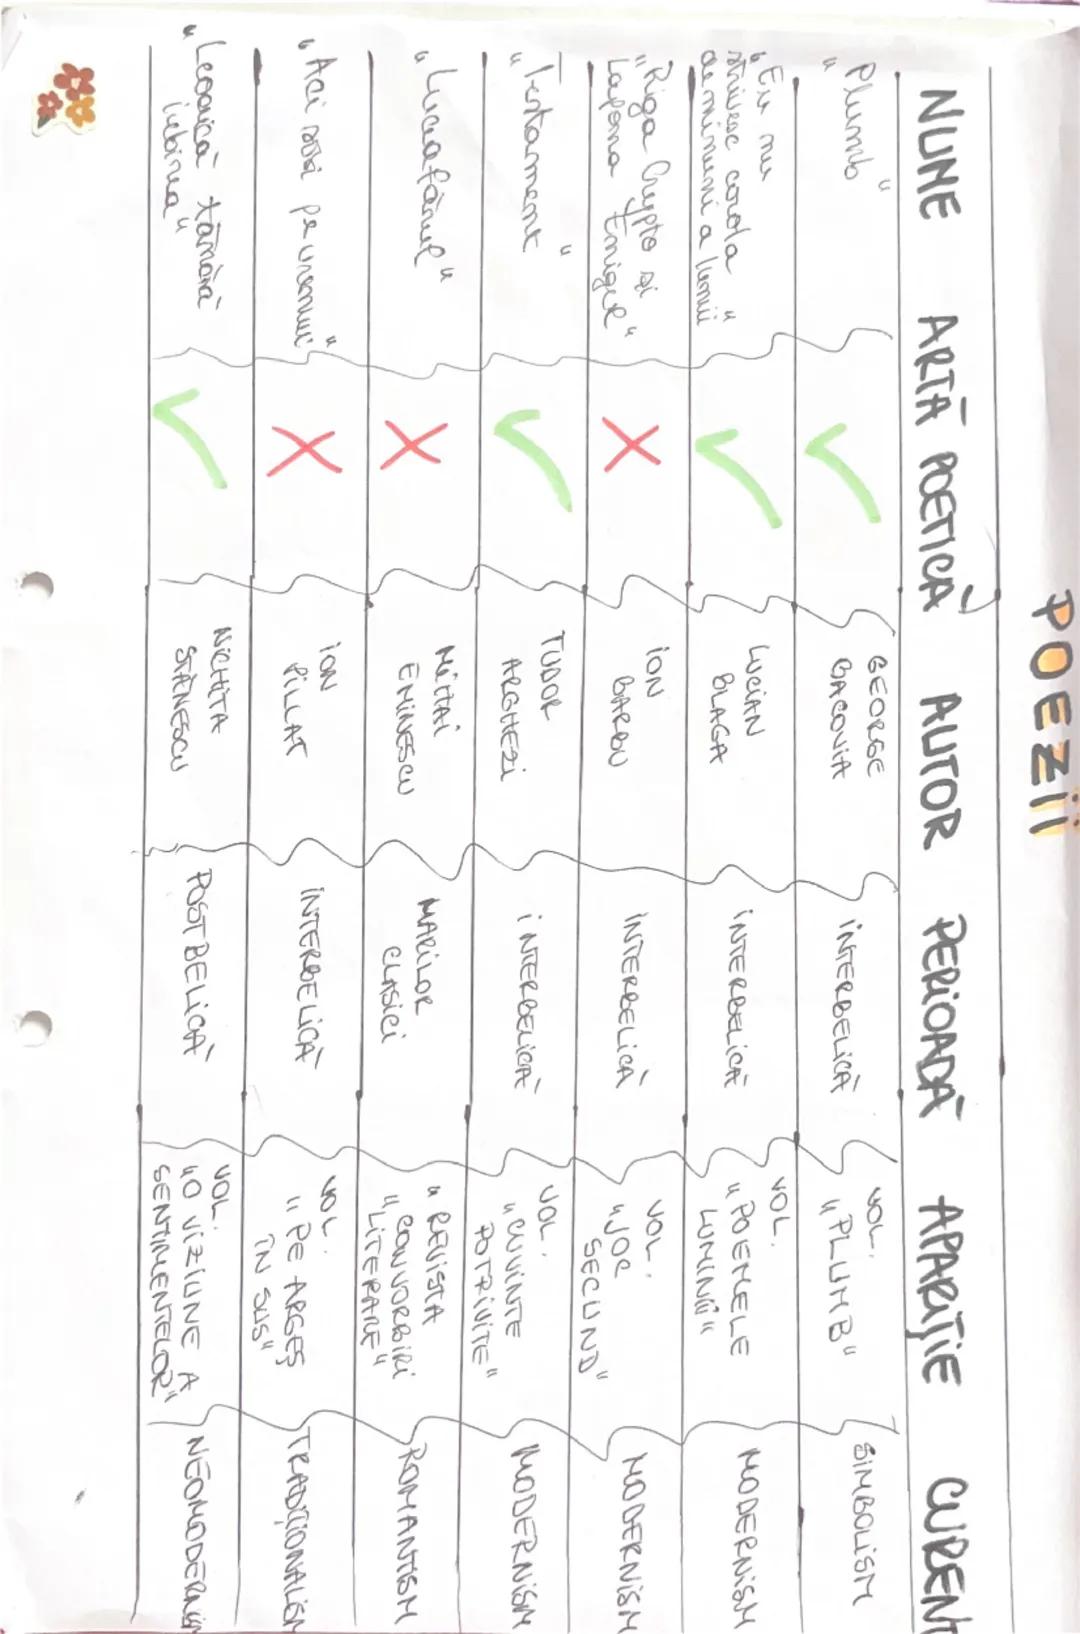 POEZII
NUME ARTĂ POETICĂ AUTOR PERIOADĂ APARIȚIE CURENT
"Plumb" GEORGE BACOVIA INTERBELICĂ VOL. "PLUMB" SIMBOLISM
"Eu nu
strivesc corola
de minuni a lumii"
LUCIAN
BLAGA
INTERBELICĂ
VOL.
"POEMELE
LUMINII"
MODERNISM
"Riga Crypto și
Lapona Enigel"
ION
BARBU
INTERBELICĂ
VOL.
"JOC
SECUND"
MODERNISM
"Testament"
TUDOR
ARGHEZI
INTERBELICĂ
VOL.
"CUVINTE
POTRIVITE"
MODERNISM
"Luceafărul"
MIHAI
EMINESCU
MARILOR
CLASICI
"REVISTA
"CONVORBIRI
LITERARE"
ROMANTISM
"Aci sosi pe vremuri"
ION
PILLAT
INTERBELICĂ
VOL.
"PE ARGEȘ
ÎN SUS"
TRADIȚIONALISM
"Leoaică tânără
iubirea"
NICHITA
STĂNESCU
POSTBELICĂ
VOL.
"O VIZIUNE A
SENTIMENTELOR"
NEOMODERNISM